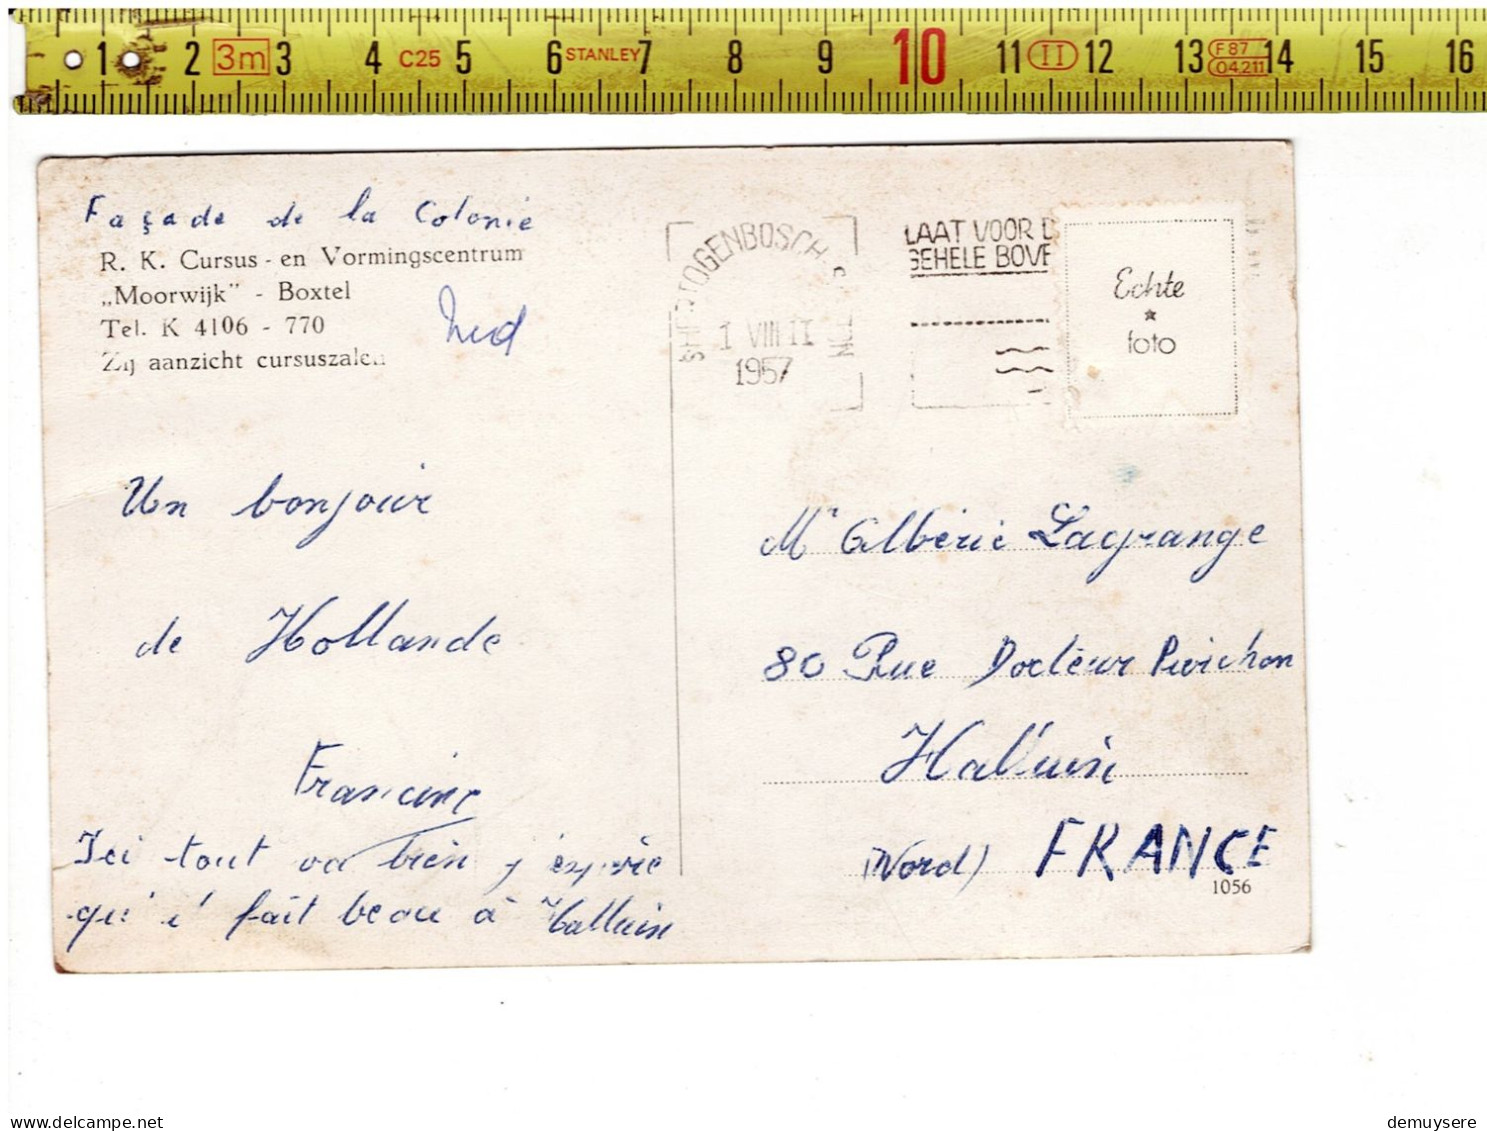 1 2 3m 3 4 C25 5 6 STANLEY 7 8 9 10 11 II 12 13 F 87 04.211 14 15 16
Façade de la Colonie
R. K. Cursus- en Vormingscentrum
„Moorwijk” - Boxtel
Tel. K 4106 - 770
Zij aanzicht cursuszalen
'S HERTOGENBOSCH
1 VIII 11
1957
LAAT VOOR D
GEHELE BOVE
Echte
foto
Un bonjour
de Hollande
Francine
Ici tout va bien j'espère
qu'il fait beau à Halluin
Mr Albéric Lagrange
80 Rue Docteur
Halluin
(Nord) FRANCE
1056
demuysere